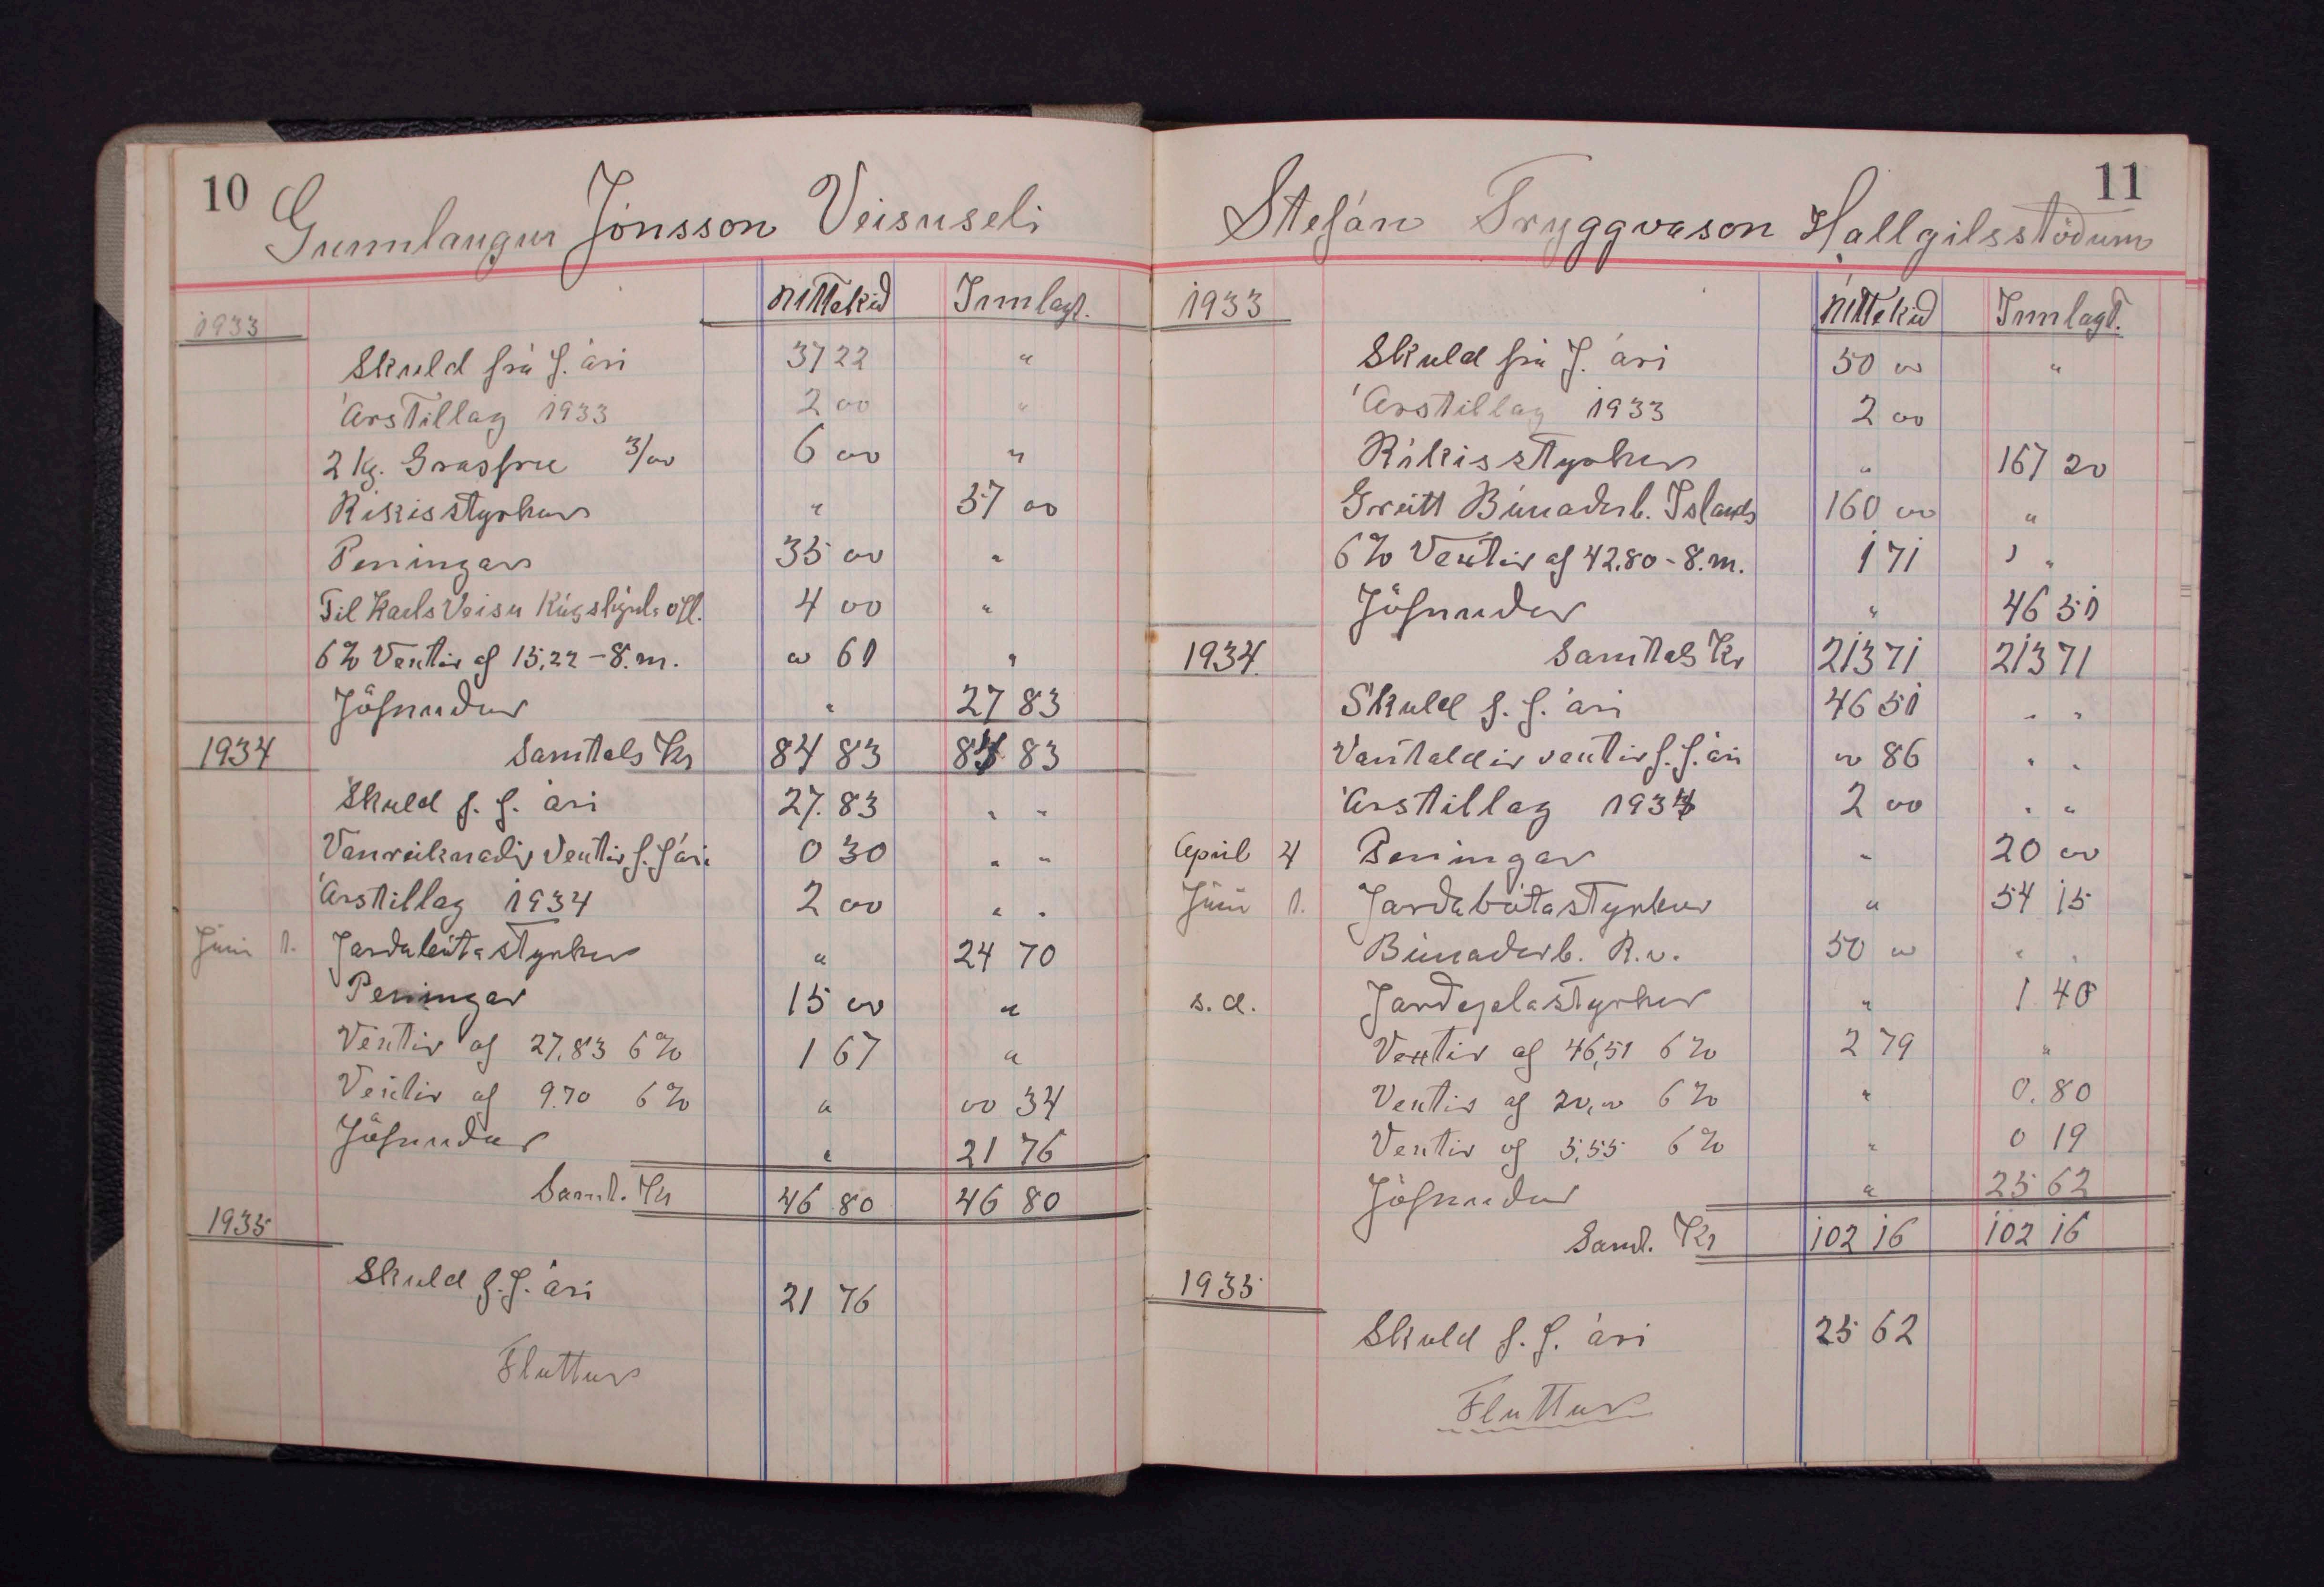 10
Gunnlaugur Jónsson Veisuseli
Úttekið Innlagt.
1933
Skuld frá f. ári 37 22 "
Árstillag 1933 2 00 "
2 kg. Grasfræ 3/00 6 00 "
Ríkisstyrkur " 57 00
Peningar 35 00 "
Til Karls Veisu 4 00 "
6% Vextir af 15,22 - 8.m. 00 61 "
Jöfnuður " 27 83
1934 Samtals Kr 84 83 84 83
Skuld f. f. ári 27.83 " "
Vanreiknaðir Vextir f. f. ári 0 30 " "
Árstillag 1934 2 00 " "
Júní 1. Jarðabótastyrkur " 24 70
Peningar 15 00 "
Vextir af 27,83 6% 1 67 "
Vextir af 9.70 6% " 00 34
Jöfnuður " 21 76
Samt. Kr 46 80 46 80
1935
Skuld f. f. ári 21 76
Fluttur
11
Stefán Tryggvason Hallgilsstöðum
1933 Úttekið Innlagt.
Skuld frá f. ári 50 00 "
Árstillag 1933 2 00
Ríkisstyrkur " 167 20
Greitt Búnaðarb. Íslands 160 00 "
6% Vextir af 42.80 - 8.m. 1 71 "
Jöfnuður " 46 51
1934. Samtals Kr 213 71 213 71
Skuld f. f. ári 46 51 " "
Vantaldir vextir f. f. ári 00 86 " "
Árstillag 1934 2 00 " "
Apríl 4 Peningar " 20 00
Júní 1. Jarðabótastyrkur " 54 15
Búnaðarb. R.v. 50 00 " "
s.d. " 1 40
Vextir af 46,51 6% 2 79 "
Vextir af 20,00 6% " 0.80
Vextir af 5,55 6% " 0 19
Jöfnuður " 25 62
Samt. Kr 102 16 102 16
1935
Skuld f. f. ári 25 62
Fluttur